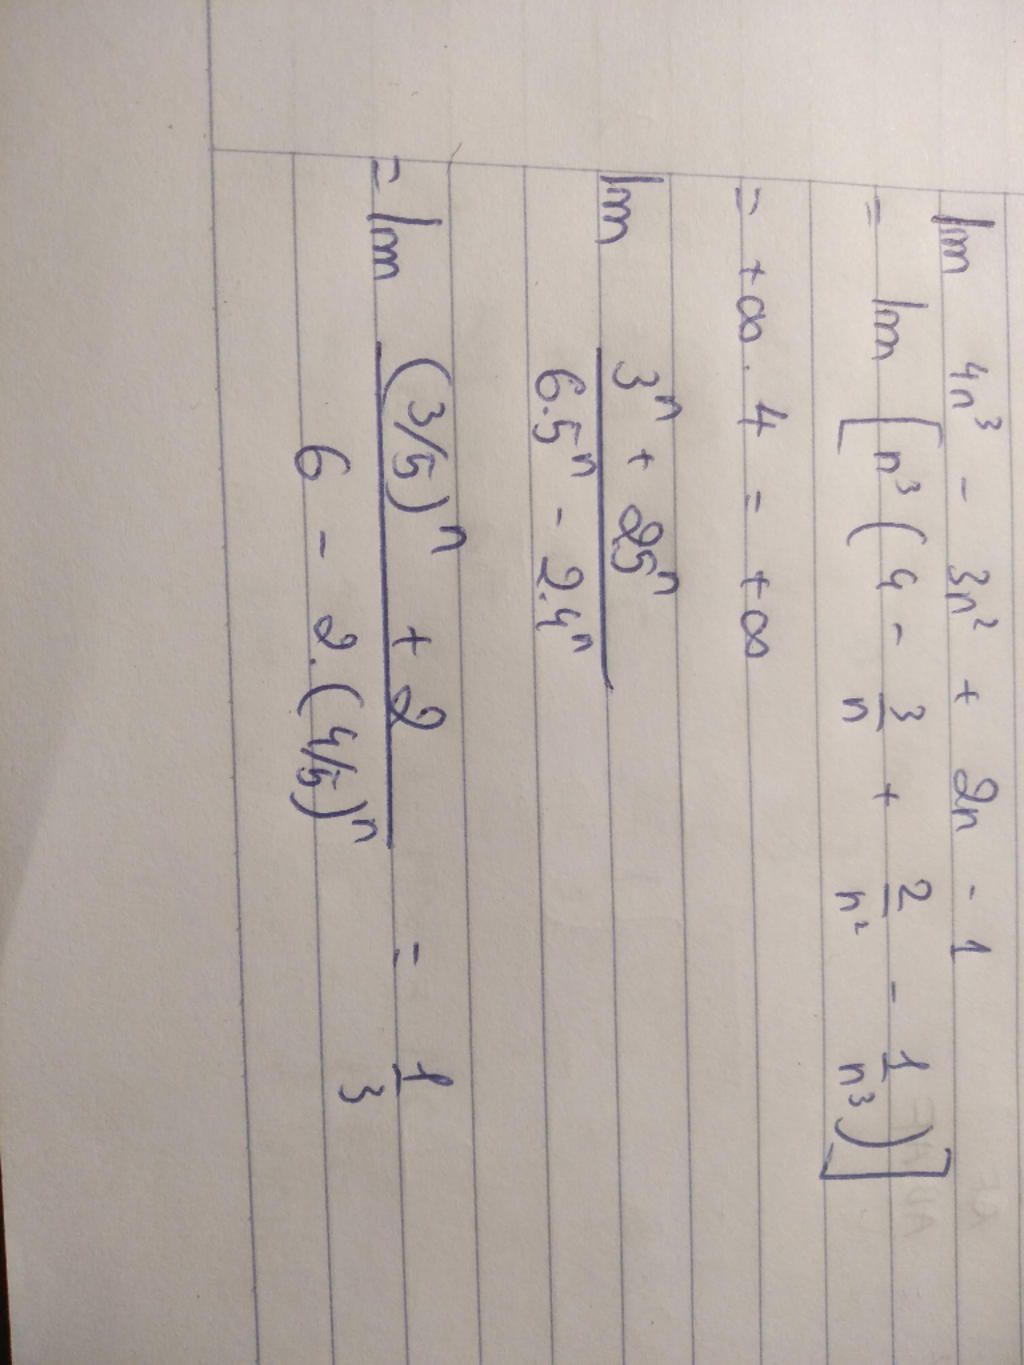 lim 4n³ - 3n² + 2n - 1
= lim [n³(4 - 3/n + 2/n² - 1/n³)]
= +∞ . 4 = +∞
lim (3ⁿ + 2.5ⁿ)/(6.5ⁿ - 2.4ⁿ)
= lim ((3/5)ⁿ + 2)/(6 - 2.(4/5)ⁿ) = 1/3